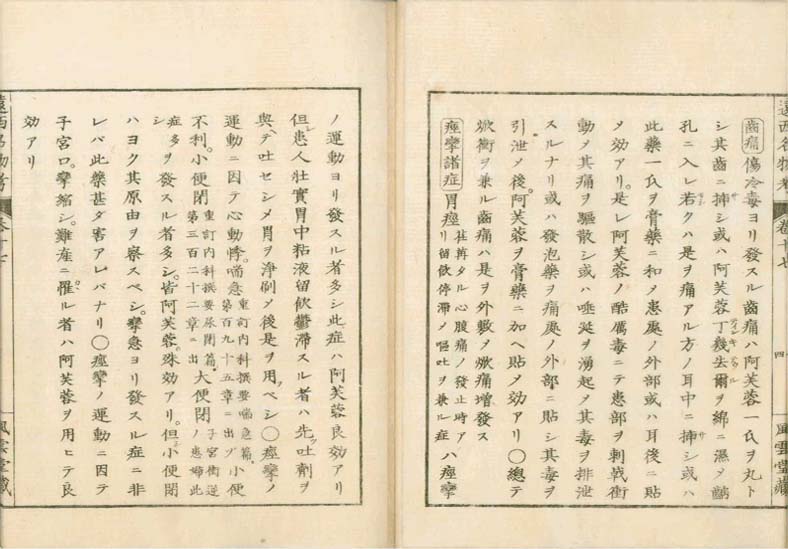 遠西名物考
卷十七
四
風雲堂藏
齒痛 傷冷毒ヨリ發スル齒痛ハ阿芙蓉一氏ヲ丸ト
シ其齒ニ揷シ或ハ阿芙蓉丁幾去爾ヲ綿ニ濕メ齲
孔ニ入レ若クハ是ヲ痛アル方ノ耳中ニ揷シ或ハ
此藥一氏ヲ膏藥ニ和メ患處ノ外部或ハ耳後ニ貼
メ効アリ。是レ阿芙蓉ノ酷厲毒ニテ患部ヲ刺戟衝
動メ其痛ヲ驅散シ或ハ唾涎ヲ湧起メ其毒ヲ排泄
スルナリ或ハ發泡藥ヲ痛處ノ外部ニ貼シ其毒ヲ
引泄メ後。阿芙蓉ヲ膏藥ニ加ヘ貼メ効アリ〇總テ
焮衝ヲ兼ル齒痛ハ是ヲ外敷メ焮痛增發ス
痙攣諸症 胃痙 心腹痛ノ發止時アリ留飲停滯メ嘔吐ヲ兼ル症 ハ痙攣
ノ運動ヨリ發スル者多シ此症ハ阿芙蓉良効アリ
但シ患人壯實胃中粘液留飲鬱滯スル者ハ先ツ吐劑ヲ
與ヘテ吐セシメ胃ヲ淨刷メ後是ヲ用ベシ〇痙攣ノ
運動ニ因テ心動悸。喘急 重訂内科撰要喘急篇。第百九十五章ニ出ヅ 小便
不利。小便閉 重訂内科撰要尿閉篇。第三百二十二章ニ出 大便閉 子宮衝逆ノ患婦此症多シ
ヲ發スル者多シ。皆阿芙蓉殊効アリ。但シ小便閉
ハヨク其原由ヲ察スベシ。攣急ヨリ發スル症ニ非
レバ此藥甚ダ害アレバナリ〇痙攣ノ運動ニ因テ
子宮口。攣縮シ。難産ニ罹ル者ハ阿芙蓉ヲ用ヒテ良
効アリ
遠西名物考
卷十七
風雲堂藏